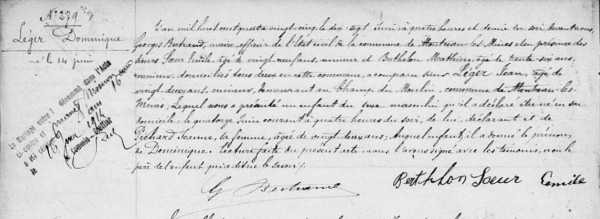 N° 279
Léger Dominique
né le 14 juin
L'an mil huit cent quatre vingt cinq le dix-sept Juin à quatre heures et demie du soir devant nous,
Georges Bertrand, maire, officier de l'état civil de la commune de Montceau les Mines en présence des
sieurs Sœur Emile, âgé de vingt neuf ans, armeur et Berthelon Mathieu âgé de trente six ans,
mineur, domiciliés tous deux en cette commune, a comparu sieur Léger Jean, âgé de
vingt deux ans, mineur, demeurant au Champ du Moulin, commune de Montceau-les-
Mines, Lequel nous a présenté un enfant du sexe masculin qu'il a déclaré être né en son
domicile le quatorze Juin courant à quatre heures du soir, de lui, déclarant et de
Pichard Jeanne, sa femme, âgée de vingt deux ans; Auquel enfant il a donné le prénom
de Dominique. Lecture faite du présent acte nous l'avons signé avec les témoins, non le
père de l'enfant qui a dit ne le savoir.
G Bertrand
Berthlon Sœur Emile